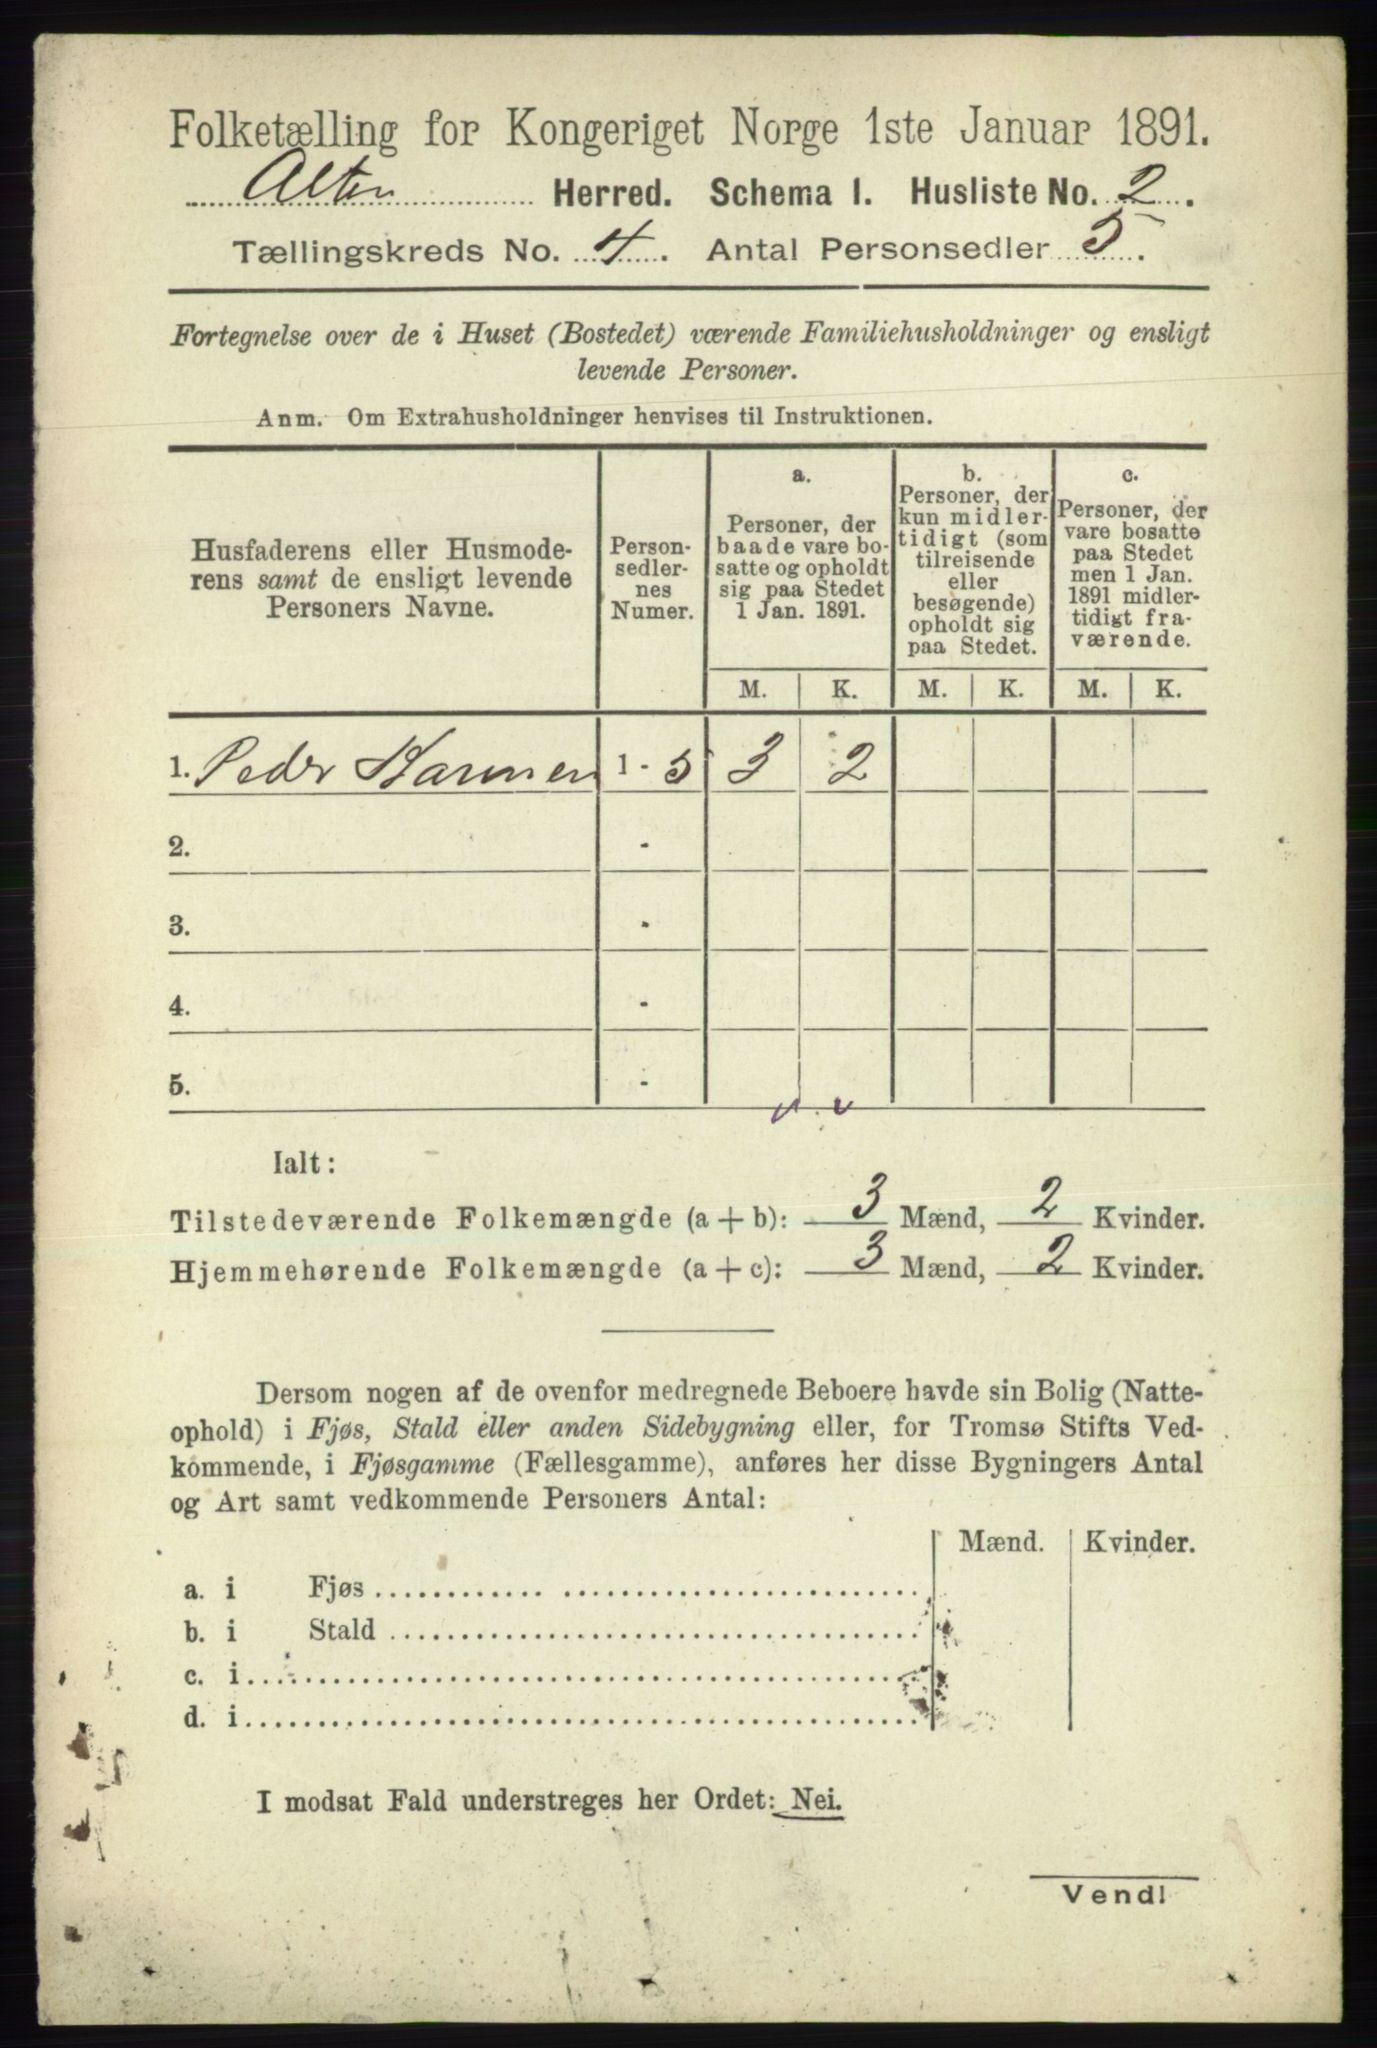 Folketælling for Kongeriget Norge 1ste Januar 1891.
Alten Herred. Schema I. Husliste No. 2.
Tællingskreds No. 4. Antal Personsedler 5.
Fortegnelse over de i Huset (Bostedet) værende Familiehusholdninger og ensligt
levende Personer.
Anm. Om Extrahusholdninger henvises til Instruktionen.
Husfaderens eller Husmode-
rens samt de ensligt levende
Personers Navne.
Person-
sedler-
nes
Numer.
a.
Personer, der
baade vare bo-
satte og opholdt
sig paa Stedet
1 Jan. 1891.
b.
Personer, der
kun midler-
tidigt (som
tilreisende
eller
besøgende)
opholdt sig
paa Stedet.
c.
Personer, der
vare bosatte
paa Stedet
men 1 Jan.
1891 midler-
tidigt fra-
værende.
M. K. M. K. M. K.
1. Peder 1 - 5 3 2
2. -
3. -
4. -
5. -
Ialt:
Tilstedeværende Folkemængde (a + b): 3 Mænd, 2 Kvinder.
Hjemmehørende Folkemængde (a + c): 3 Mænd, 2 Kvinder.
Dersom nogen af de ovenfor medregnede Beboere havde sin Bolig (Natte-
ophold) i Fjøs, Stald eller anden Sidebygning eller, for Tromsø Stifts Ved-
kommende, i Fjøsgamme (Fællesgamme), anføres her disse Bygningers Antal
og Art samt vedkommende Personers Antal:
Mænd. Kvinder.
a. i Fjøs
b. i Stald
c. i
d. i
I modsat Fald understreges her Ordet: Nei.
Vend!